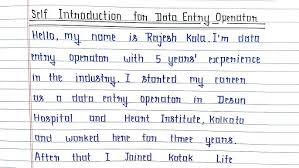 Self Introduction for Data Entry Operator
Hello, my name is Rajesh Kala. I'm data
entry operator with 5 years' experience
in the industry. I started my career
as a data entry operator in Desun
Hospital and Heart Institute, Kolkata
and worked here for three years.
After that I Joined Kotak Life